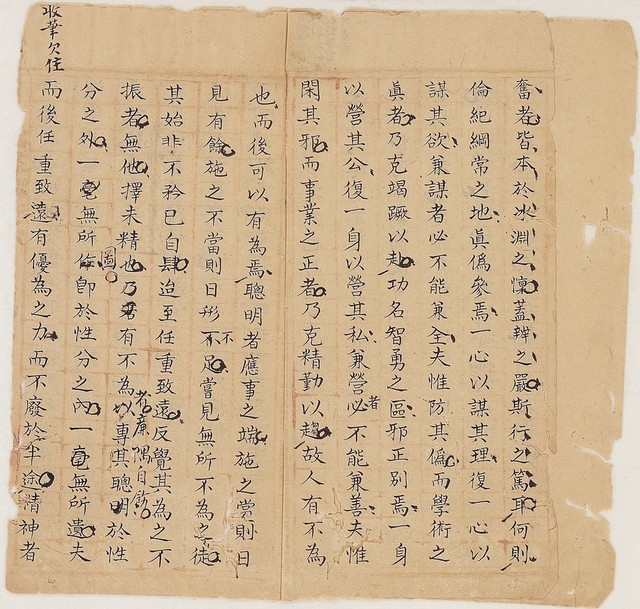 奮者皆本於冰淵之懍蓋辨之嚴斯行之篤耳何則
倫紀綱常之地真偽參焉一心以謀其理復一心以
謀其欲兼謀者必不能兼全夫惟防其偽而學術之
真者乃克竭蹶以赴功名智勇之區邪正別焉一身
以營其公復一身以營其私兼營者必不能兼善夫惟
閑其邪而事業之正者乃克精勤以趨故人有不為
也而後可以有為焉聰明者應事之端施之當則日
見有餘施之不當則日形不足嘗見無所不為之徒
其始非不矜已自肆迨至任重致遠反覺其為之不
振者無他擇未精也乃若有不為者廉隅自飭以專其聰明於性
分之外一毫無所圖即於性分之內一毫無所遺夫
而後任重致遠有優為之力而不廢於半途精神者
收華欠住